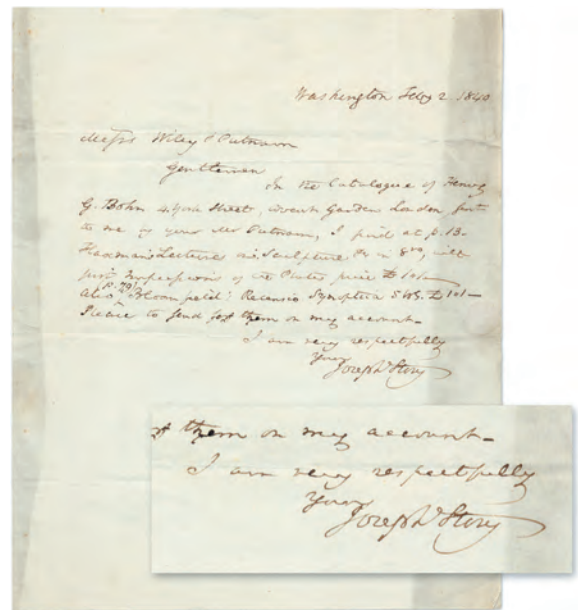 Washington Feby 2. 1840
Messrs Wiley & Putnam
Gentlemen
In the Catalogue of Henry
G. Bohn 4 York Street, Covent Garden London, sent
to me by your Mr Putnam, I find at p. 13-
Flaxman's Lectures on Sculpture in 8vo, with
first impressions of the Plates price £ 1
also p. 79 Bloomfield's Recensio Synoptica 8 vols. £
Please to send for them on my account-
I am very respectfully
Yours
Joseph Story
them on my account-
I am very respectfully
Yours
Joseph Story